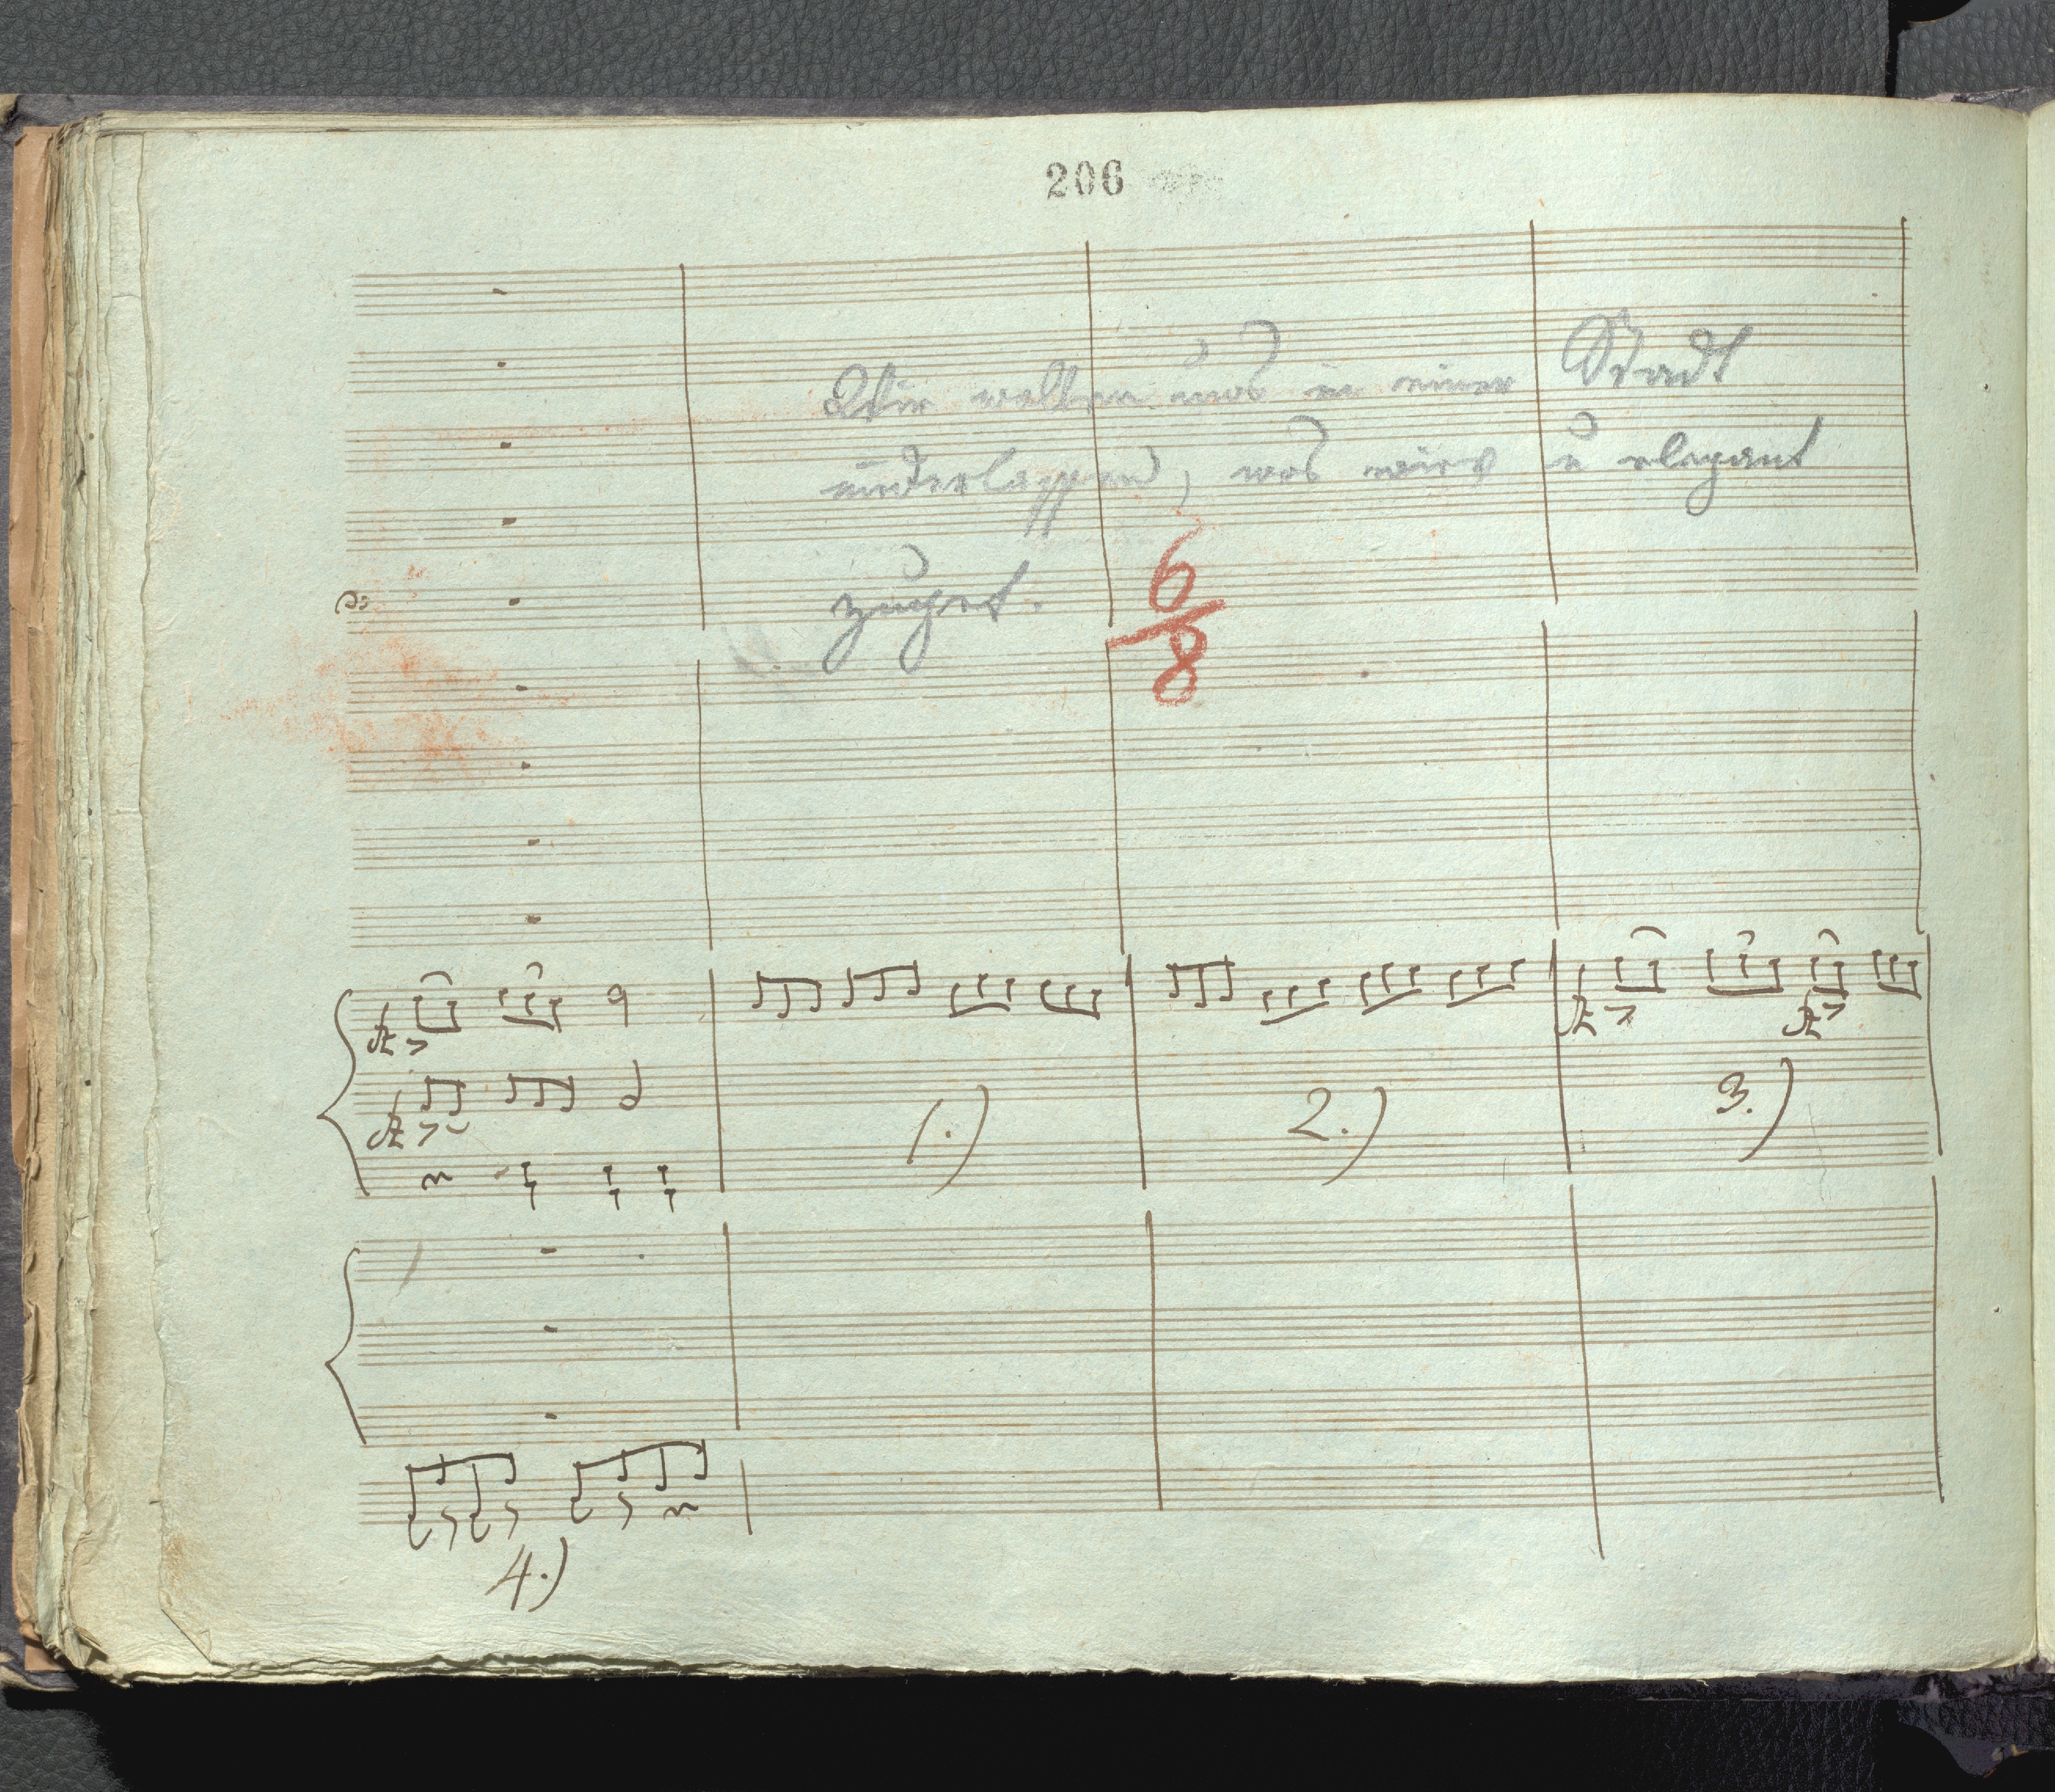 206
Wir wollen uns in einer Stadt
niederlassen, wos nirr u elegant
zuget.
6
8
1.) 2.) 3.)
4.)